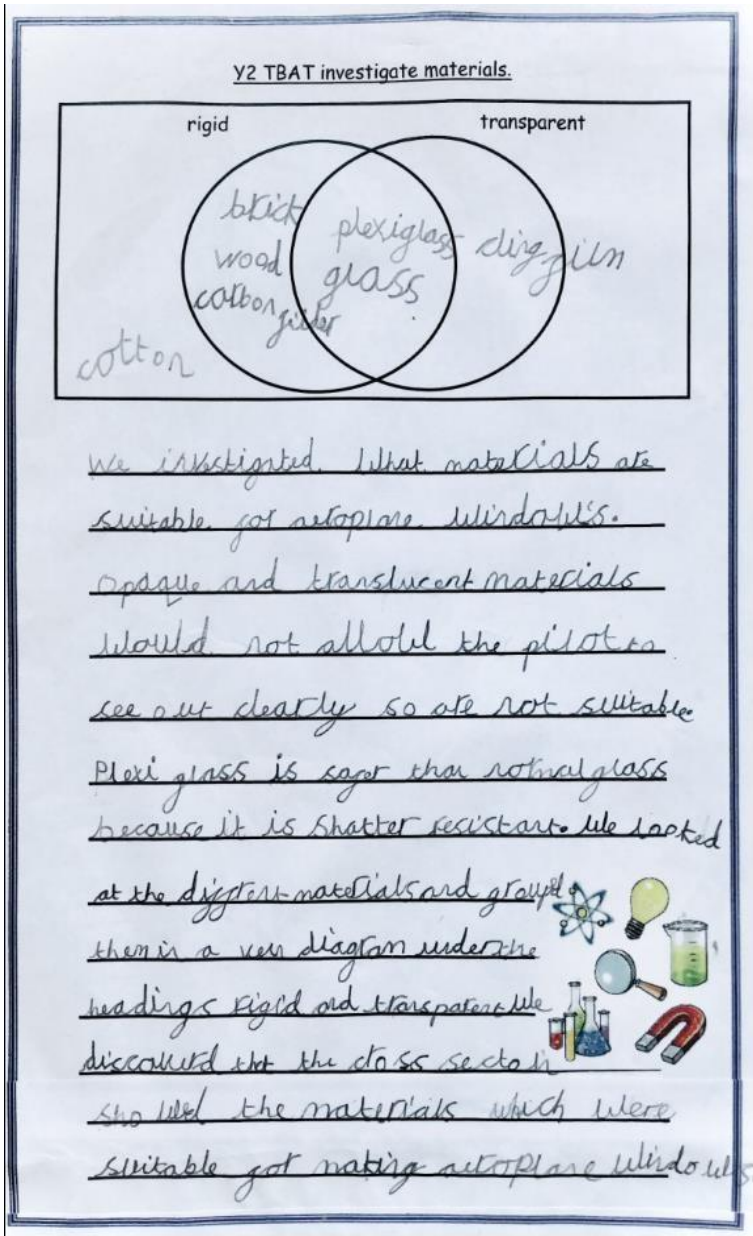 Y2 TBAT investigate materials.
rigid transparent
brick
wood
carbon fiber
plexiglass
glass
cling film
cotton
We investigated. What materials are
suitable for aeroplane windows.
Opaque and translucent materials
would not allow the pilot to
see out clearly so are not suitable.
Plexi glass is safer than normal glass
because it is shatter resistant. We looked
at the different materials and grouped
them in a ven diagram under the
headings rigid and transparent We
discoverd that the cross section
showed the materials which were
suitable for making aeroplane windows